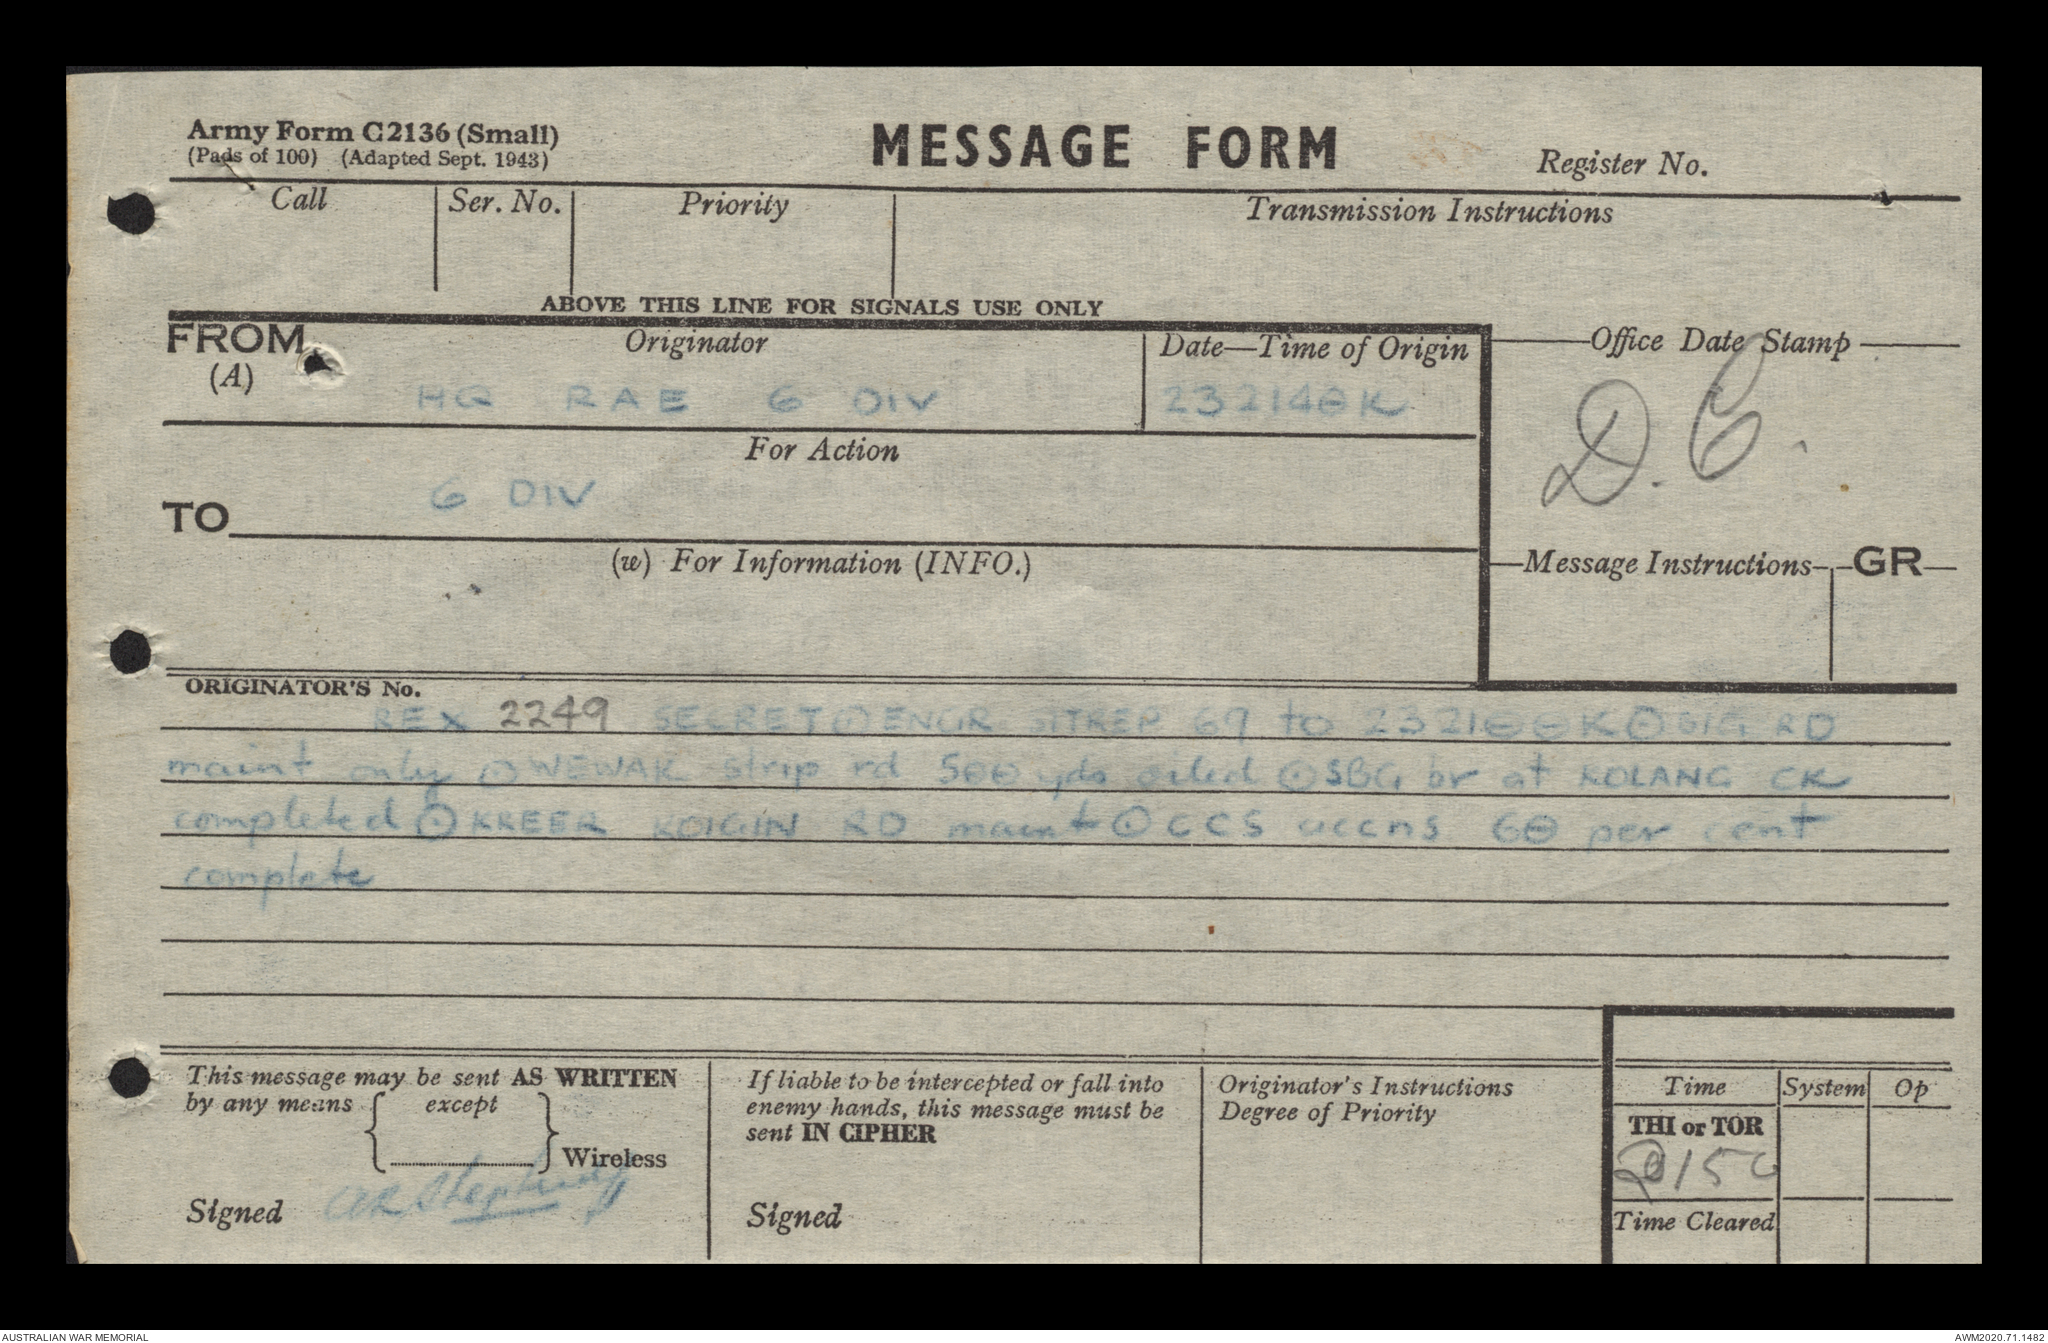 Army Form C2136 (Small)
(Pads of 100) (Adapted Sept. 1943)
MESSAGE FORM
Register No.
Call
Ser. No.
Priority
Transmission Instructions
ABOVE THIS LINE FOR SIGNALS USE ONLY
FROM
(A)
Originator
HQ RAE 6 DIV
Date—Time of Origin
232140K
Office Date Stamp
D.C.
For Action
TO
6 DIV
(w) For Information (INFO.)
Message Instructions
GR
ORIGINATOR'S No.
REX 2249 SECRET ⊙ ENGR SITREP 69 to 232100K ⊙ RD
maint only ⊙ WEWAK strip rd 500 yds oiled ⊙ SBG br at KOLANG CK
completed ⊙ KREER KOIGIN RD maint ⊙ CCS accns 60 per cent
complete
This message may be sent AS WRITTEN
by any means { except } Wireless
Signed
If liable to be intercepted or fall into
enemy hands, this message must be
sent IN CIPHER
Signed
Originator's Instructions
Degree of Priority
Time
System
Op
THI or TOR
Time Cleared
AUSTRALIAN WAR MEMORIAL
AWM2020.71.1482